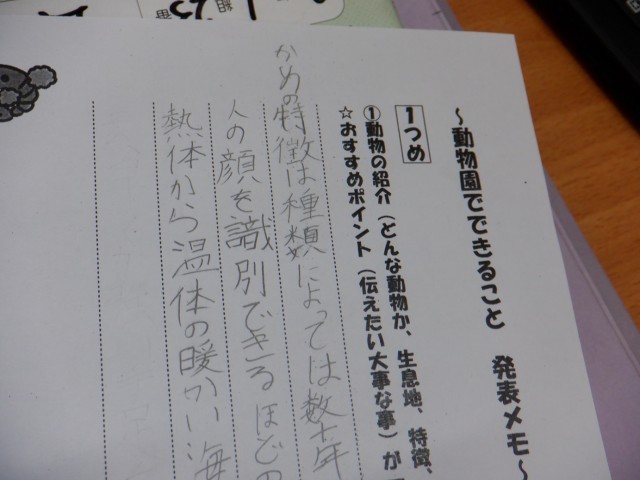 ～動物園でできること 発表メモ～
1つめ
①動物の紹介（どんな動物か、生息地、特徴、
☆おすすめポイント（伝えたい大事な事）が
かめの特徴は種類によっては数十年
人の顔を識別できるほどの
熱体から温体の暖かい海
組
番